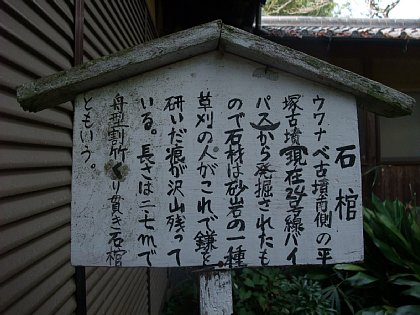 石棺
ウワナベ古墳南側の平
塚古墳(現在24号線バイ
パス)から発掘されたも
ので石材は砂岩の一種
草刈の人がこれで鎌を
研いだ痕が沢山残って
いる。長さは二七mで
舟型割所くり貫き石棺
ともいう。